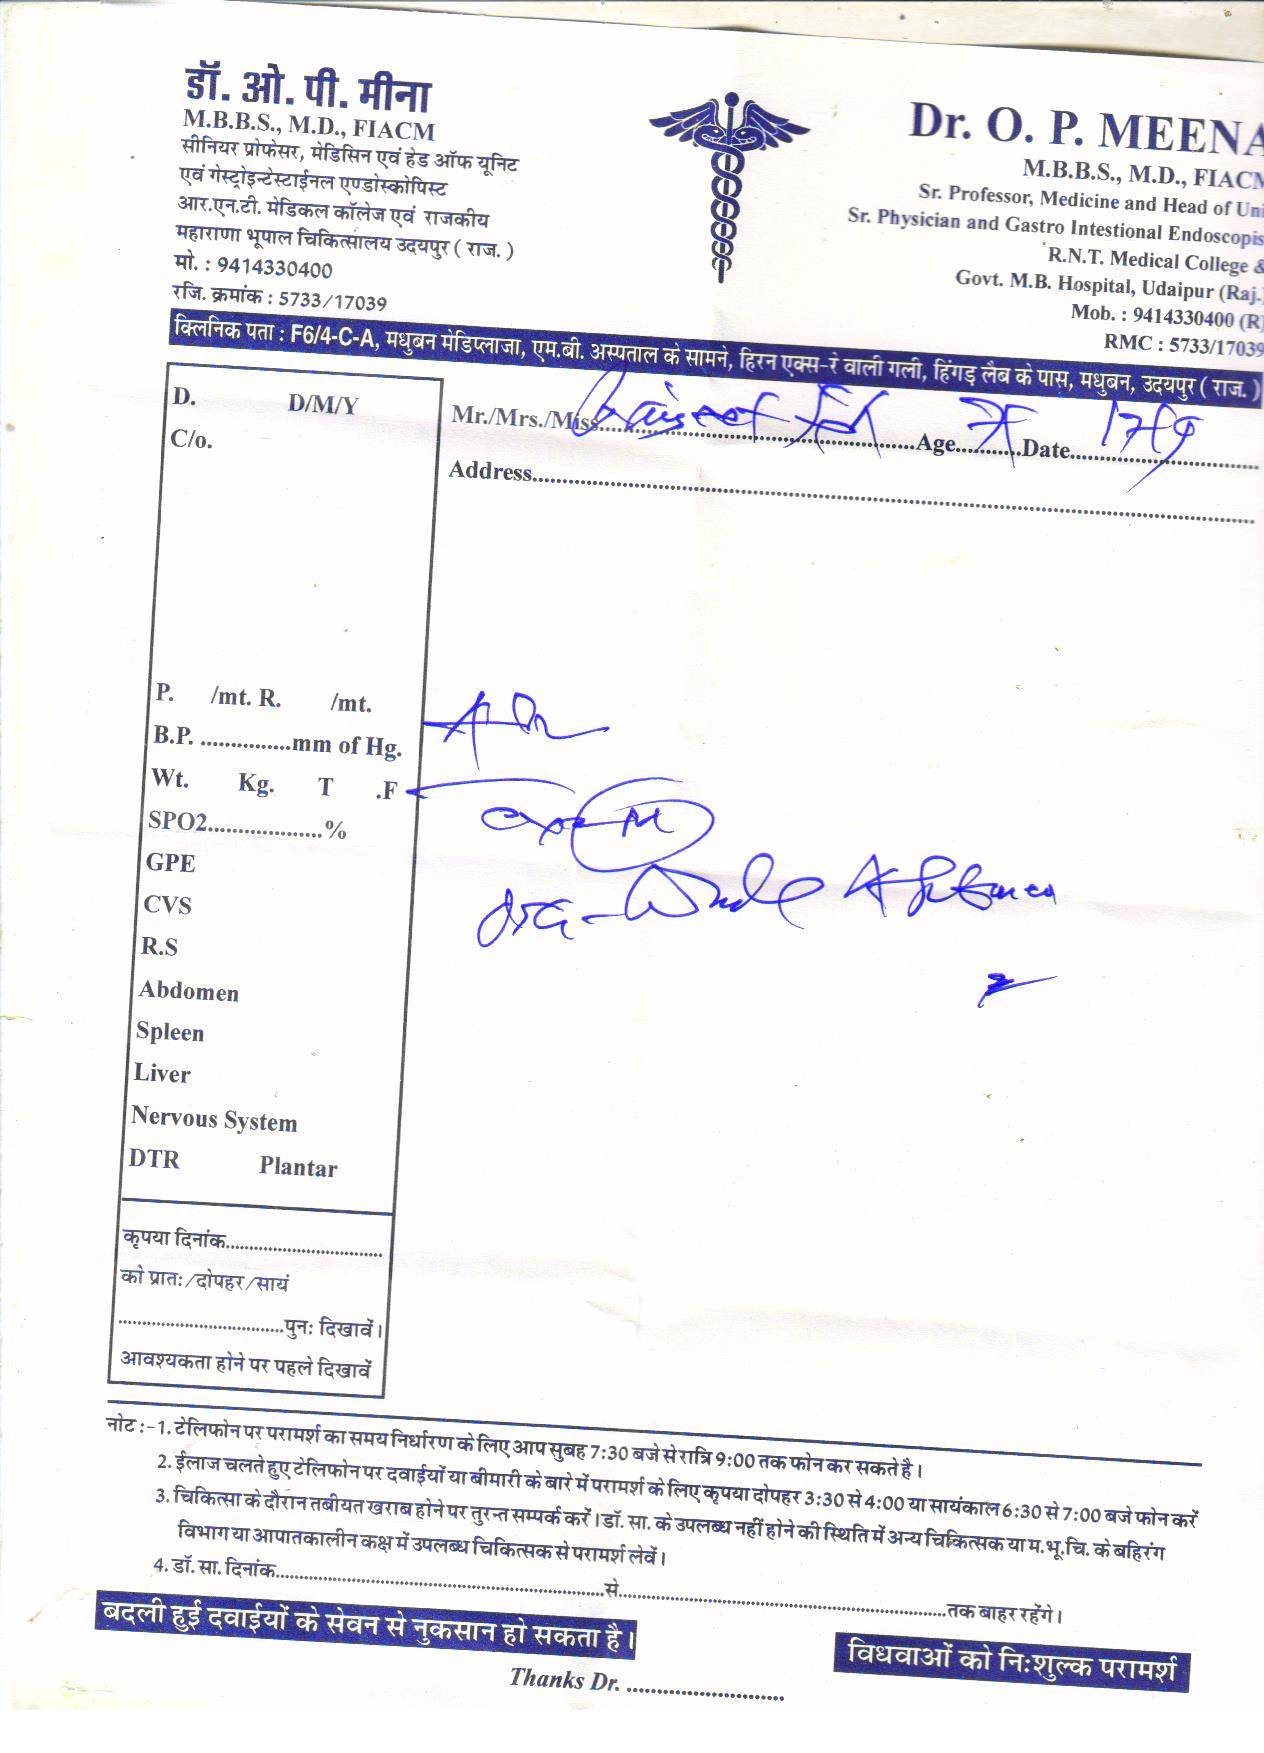 डॉ. ओ. पी. मीना
M.B.B.S., M.D., FIACM
सीनियर प्रोफेसर, मेडिसिन एवं हेड ऑफ यूनिट
एवं गेस्ट्रोइन्टेस्टाईनल एण्डोस्कोपिस्ट
आर.एन.टी. मेडिकल कॉलेज एवं राजकीय
महाराणा भूपाल चिकित्सालय उदयपुर ( राज. )
मो. : 9414330400
रजि. क्रमांक : 5733/17039
Dr. O. P. MEENA
M.B.B.S., M.D., FIACM
Sr. Professor, Medicine and Head of Uni
Sr. Physician and Gastro Intestional Endoscopis
R.N.T. Medical College &
Govt. M.B. Hospital, Udaipur (Raj.
Mob. : 9414330400 (R)
RMC : 5733/17039
क्लिनिक पता : F6/4-C-A, मधुबन मेडिप्लाजा, एम.बी. अस्पताल के सामने, हिरन एक्स-रे वाली गली, हिंगड़ लैब के पास, मधुबन, उदयपुर ( राज. )
Mr./Mrs./Miss. Age Date
Address
D. D/M/Y
C/o.
P. /mt. R. /mt.
B.P. mm of Hg.
Wt. Kg. T .F
SPO2 %
GPE
CVS
R.S
Abdomen
Spleen
Liver
Nervous System
DTR Plantar
कृपया दिनांक
को प्रातः/दोपहर/सायं
पुनः दिखावें।
आवश्यकता होने पर पहले दिखावें
नोट :-1. टेलिफोन पर परामर्श का समय निर्धारण के लिए आप सुबह 7:30 बजे से रात्रि 9:00 तक फोन कर सकते है।
2. ईलाज चलते हुए टेलिफोन पर दवाईयों या बीमारी के बारे में परामर्श के लिए कृपया दोपहर 3:30 से 4:00 या सायंकाल 6:30 से 7:00 बजे फोन करें
3. चिकित्सा के दौरान तबीयत खराब होने पर तुरन्त सम्पर्क करें। डॉ. सा. के उपलब्ध नहीं होने की स्थिति में अन्य चिकित्सक या म.भू.चि. के बहिरंग
विभाग या आपातकालीन कक्ष में उपलब्ध चिकित्सक से परामर्श लेवें।
4. डॉ. सा. दिनांक से तक बाहर रहेंगे।
बदली हुई दवाईयों के सेवन से नुकसान हो सकता है।
विधवाओं को निःशुल्क परामर्श
Thanks Dr.